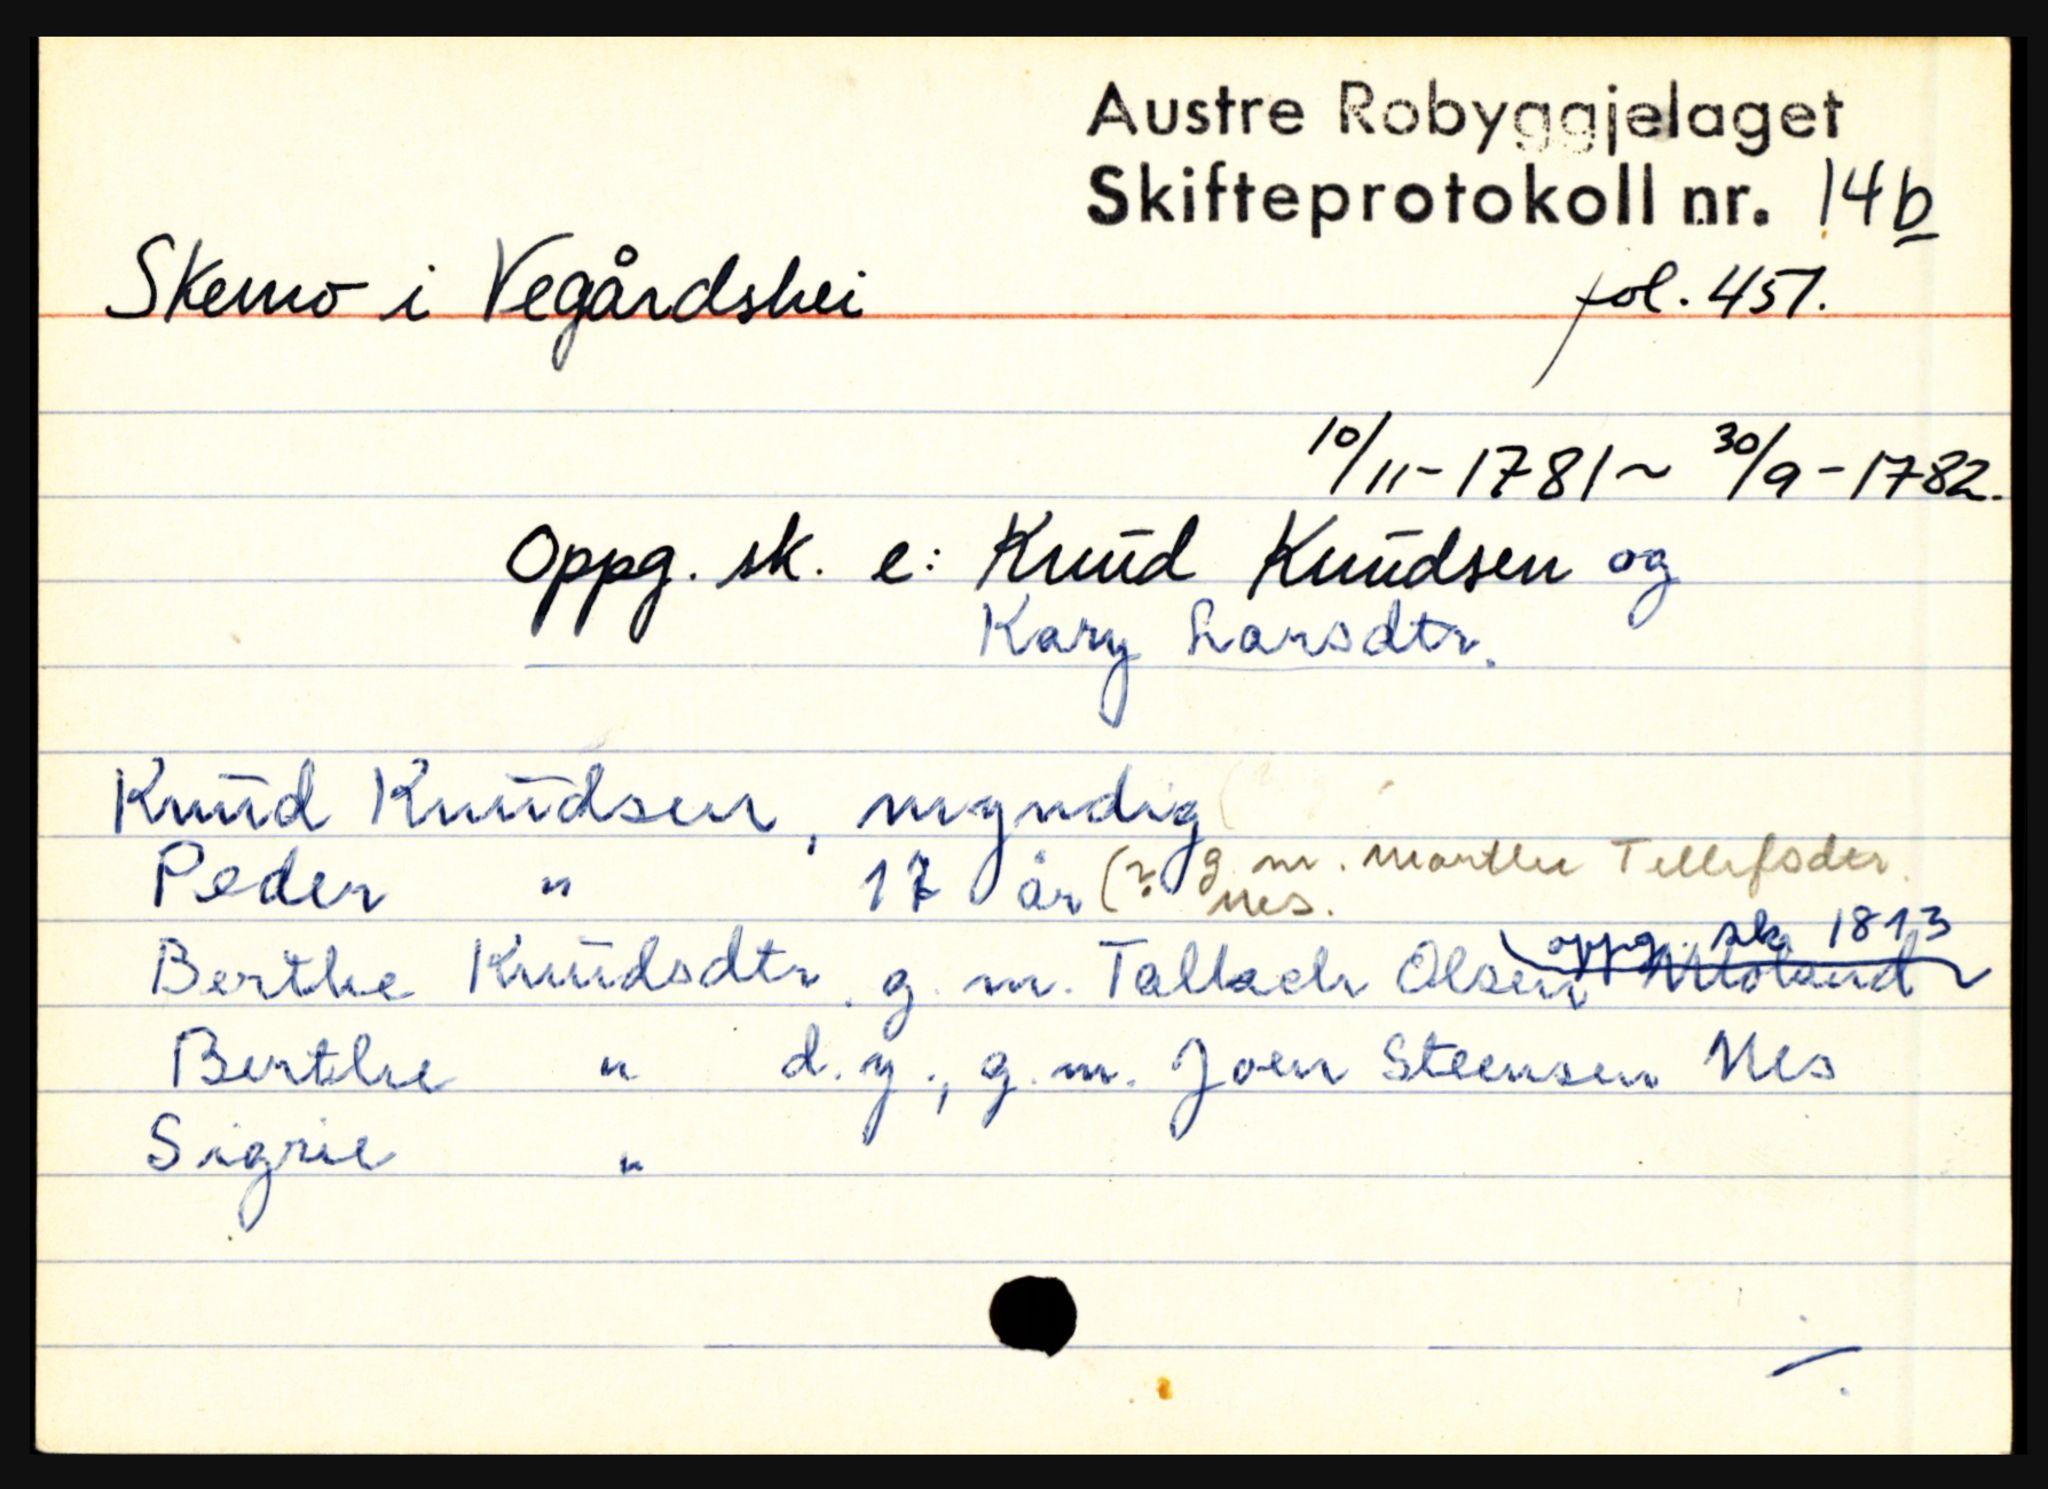 Austre Robyggjelaget
Skifteprotokoll nr. 14b
Skemo i Vegårdshei fol. 451.
10/11-1781 ~ 30/9-1782.
Oppg. sk. e: Knud Knudsen og
Kary Larsdtr.
Knud Knudsen, myndig
Peder " 17 år (? g. m. Marthe Tellefsdtr.
Nes.
oppg. sk 1813
Berthe Knudsdtr. g. m. Tallach Olsen Moland
Berthe " d.y., g.m. Joen Steensen Nes
Sigrie "